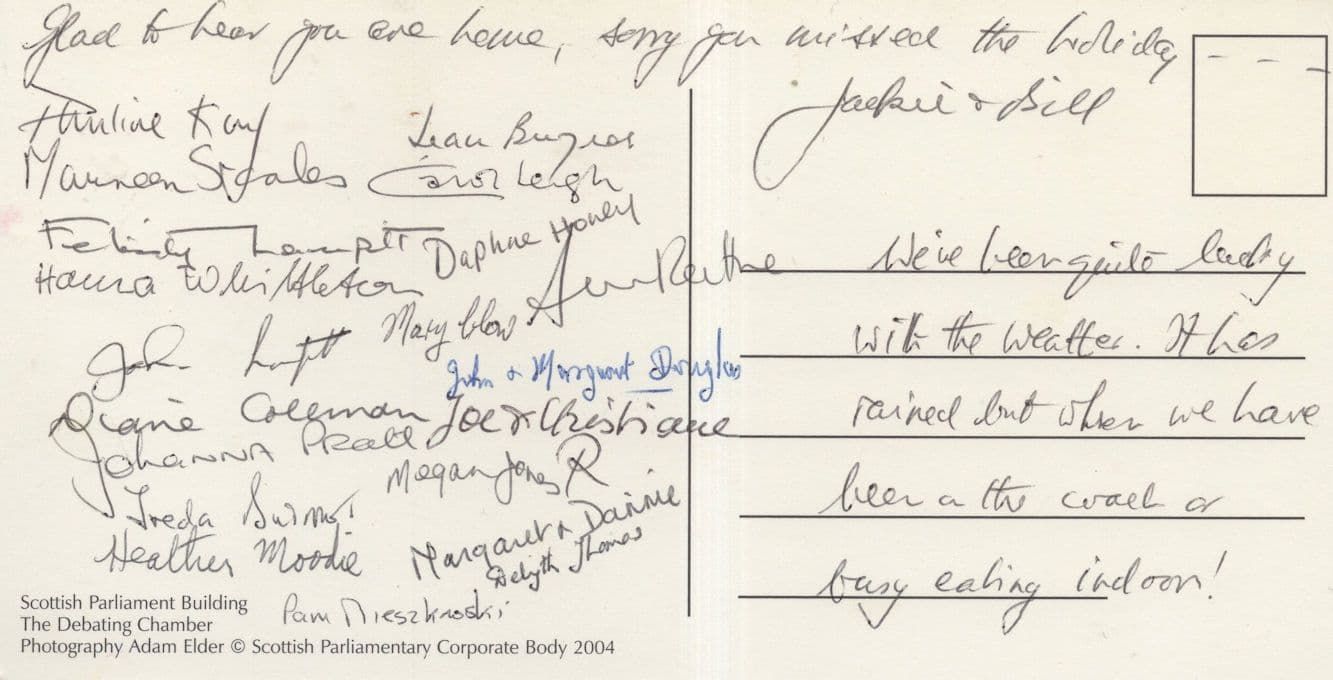 Glad to hear you are home, sorry you missed the holiday
Jackie + Bill
Kay
Jean Burgess
Maureen Scales
Carol Leigh
Felicity
Daphne Honey
Hanna Whittleton
Ann
John
Mary Clow
John & Margaret Douglas
Diane Coleman
Joe & Christiane
Johanna Pratt
Megan Jones R
Freda
Margaret & Dannie
Heather Moodie
Delyth Thomas
Pam Mieszkowski
We've been quite lucky
with the weather. It has
rained but when we have
been on the coach or
busy eating indoors!
Scottish Parliament Building
The Debating Chamber
Photography Adam Elder © Scottish Parliamentary Corporate Body 2004